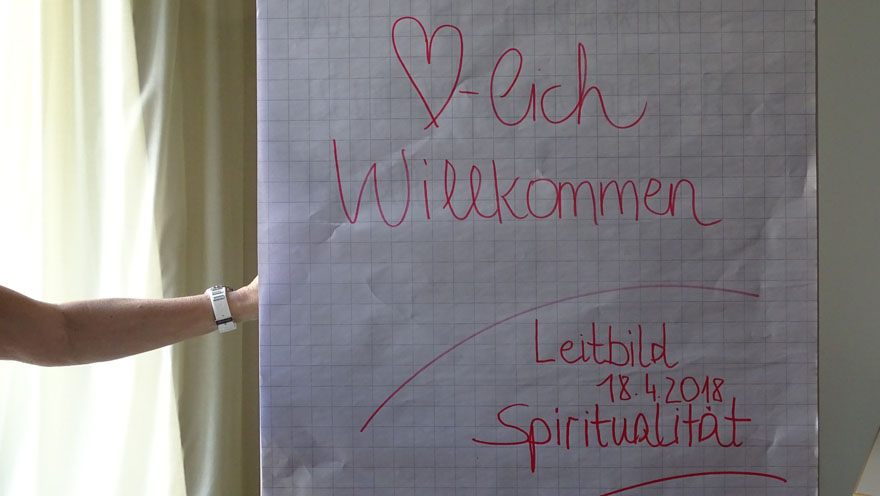 ♡-lich
Willkommen
Leitbild
18.4.2018
Spiritualität